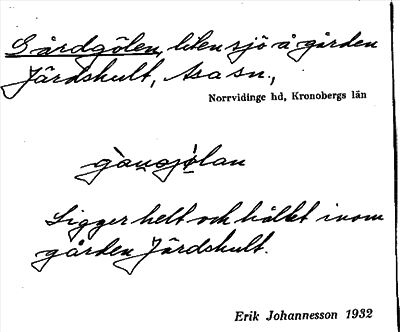 Gårdgölen, liten sjö å gården
Järdshult, Asa sn.,
Norrvidinge hd, Kronobergs län
Ligger helt och hållet inom
gården Järdshult.
Erik Johannesson 1932